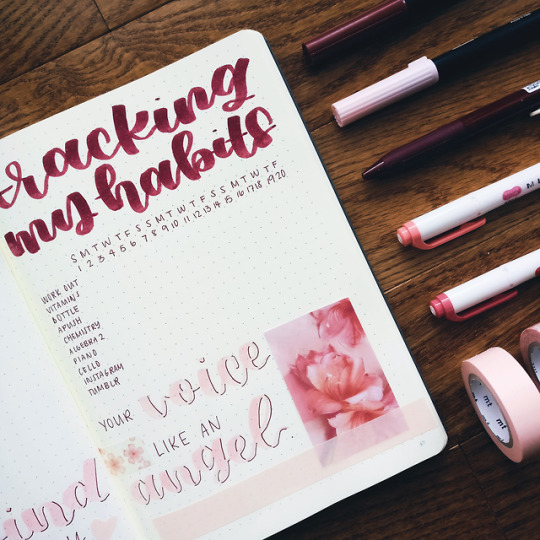 racking
my habits
S M T W T F S S M T W T F S S M T W T F
1 2 3 4 5 6 7 8 9 10 11 12 13 14 15 16 17 18 19 20
WORK OUT
VITAMINS
BOTTLE
APUSH
CHEMISTRY
ALGEBRA 2
PIANO
CELLO
INSTAGRAM
TUMBLR
YOUR voice
LIKE AN
angel.
ind
mt
mt